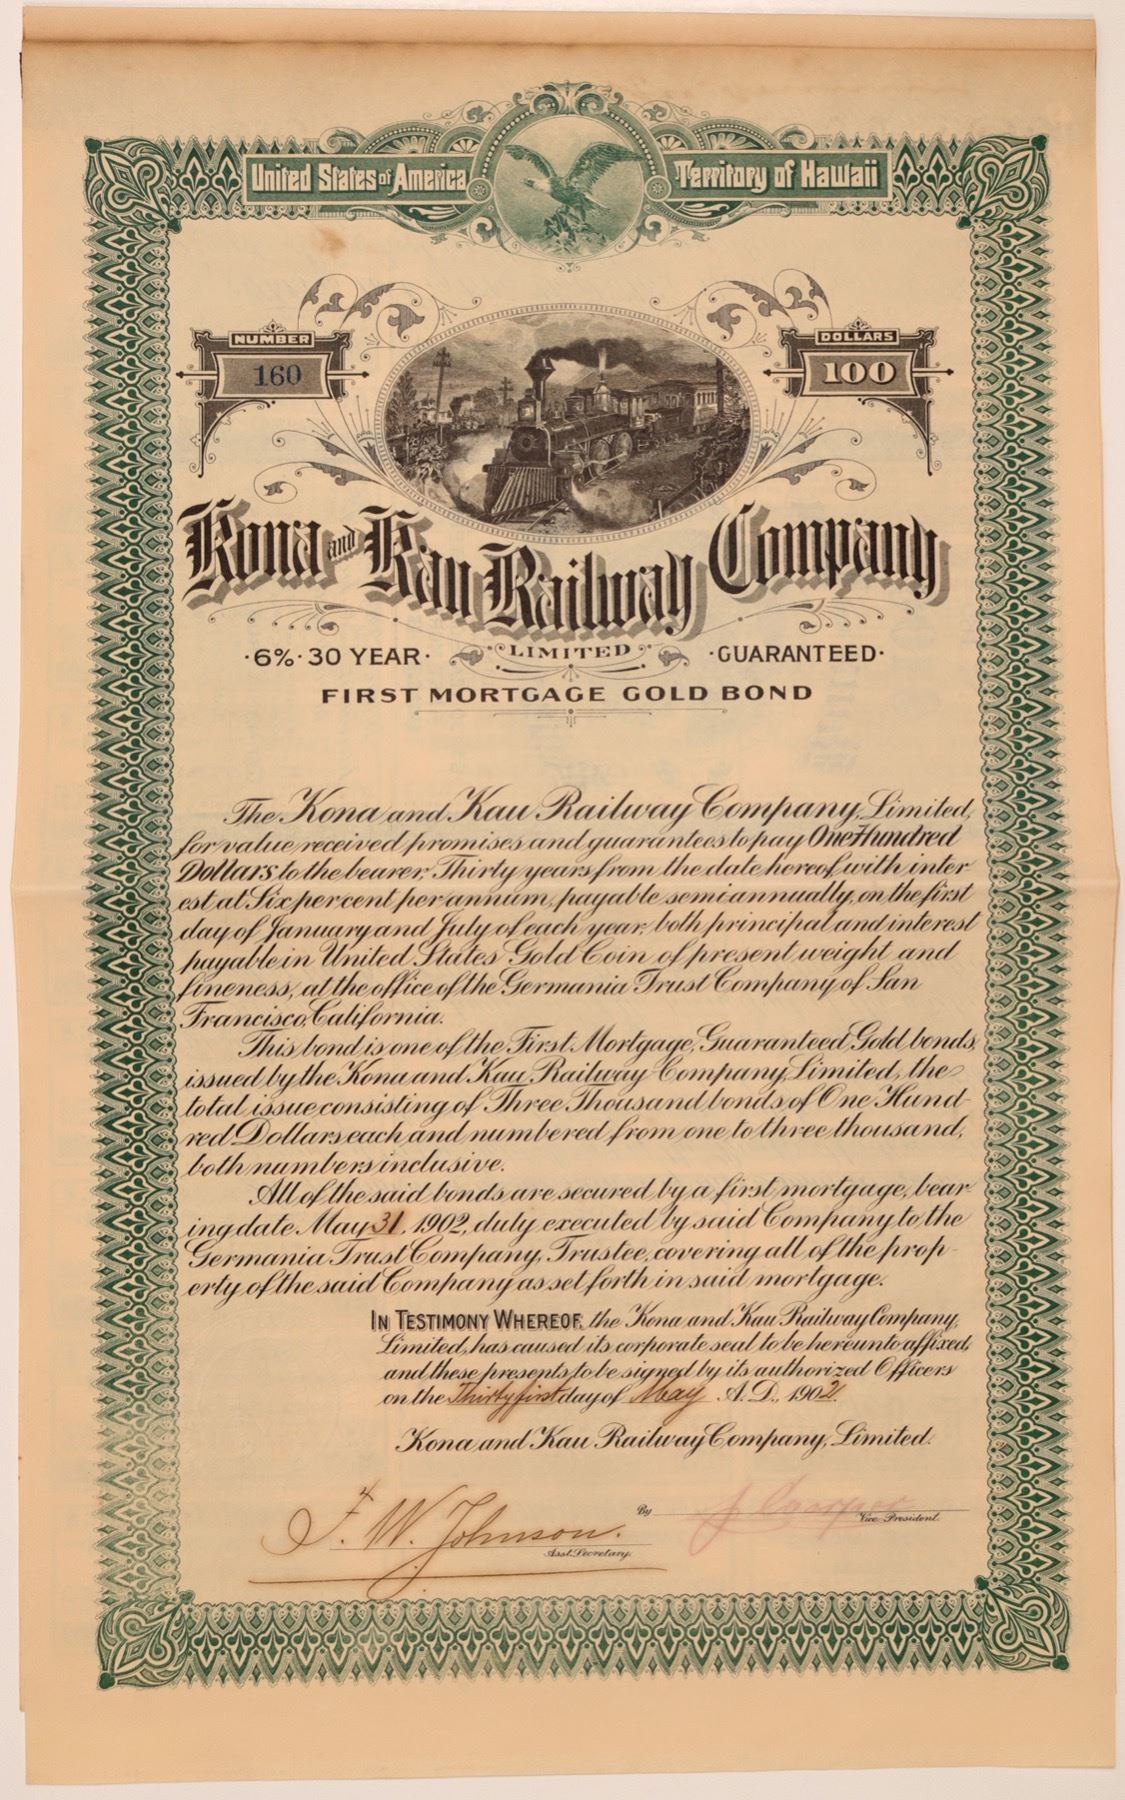 United States of America
Territory of Hawaii
NUMBER
160
DOLLARS
100
Kona and Kau Railway Company
LIMITED
·6%·30 YEAR·
·GUARANTEED·
FIRST MORTGAGE GOLD BOND
The Kona and Kau Railway Company, Limited,
for value received promises and guarantees to pay One Hundred
Dollars to the bearer, Thirty years from the date hereof with inter-
est at Six per cent per annum, payable semiannually, on the first
day of January and July of each year, both principal and interest
payable in United States Gold Coin of present weight and
fineness, at the office of the Germania Trust Company of San
Francisco, California.
This bond is one of the First Mortgage, Guaranteed Gold bonds,
issued by the Kona and Kau Railway Company, Limited, the
total issue consisting of Three Thousand bonds of One Hund-
red Dollars each and numbered from one to three thousand,
both numbers inclusive.
All of the said bonds are secured by a first mortgage, bear-
ing date May 31, 1902, duly executed by said Company to the
Germania Trust Company, Trustee, covering all of the prop-
erty of the said Company as set forth in said mortgage.
IN TESTIMONY WHEREOF, the Kona and Kau Railway Company,
Limited, has caused its corporate seal to be hereunto affixed,
and these presents to be signed by its authorized Officers
on the Thirty first day of May A. D., 1902.
Kona and Kau Railway Company, Limited.
F. W. Johnson.
Asst. Secretary.
By
Vice President.